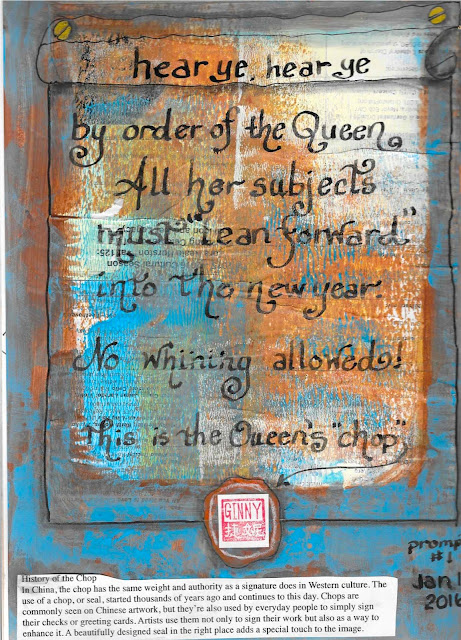 hear ye, hear ye
by order of the Queen,
All her subjects
must "lean forward"
into the new year.
No whining allowed!
This is the Queen's "chop"
GINNY
prompt
#1
Jan 1
2016
History of the Chop
In China, the chop has the same weight and authority as a signature does in Western culture. The
use of a chop, or seal, started thousands of years ago and continues to this day. Chops are
commonly seen on Chinese artwork, but they're also used by everyday people to simply sign
their checks or greeting cards. Artists use them not only to sign their work but also as a way to
enhance it. A beautifully designed seal in the right place adds a special touch to the image.